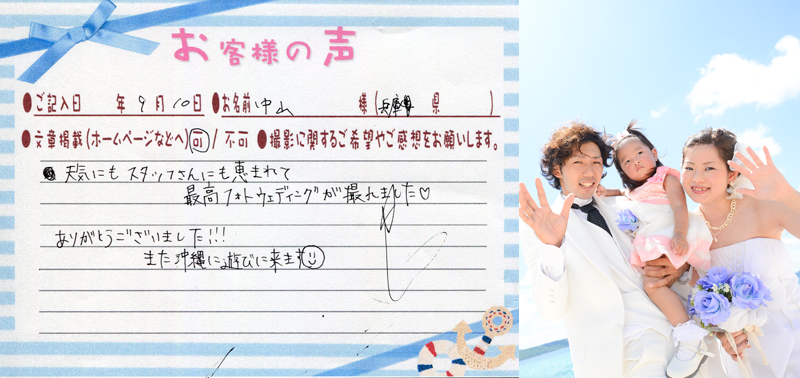 お客様の声
●ご記入日 年 9 月 10 日 ●お名前 中山 様 (兵庫 県 )
●文章掲載(ホームページなどへ) 可 / 不可 ●撮影に関するご希望やご感想をお願いします。
天気にもスタッフさんにも恵まれて
最高フォトウェディングが撮れました♡
ありがとうございました!!!
また沖縄に遊びに来ます☺